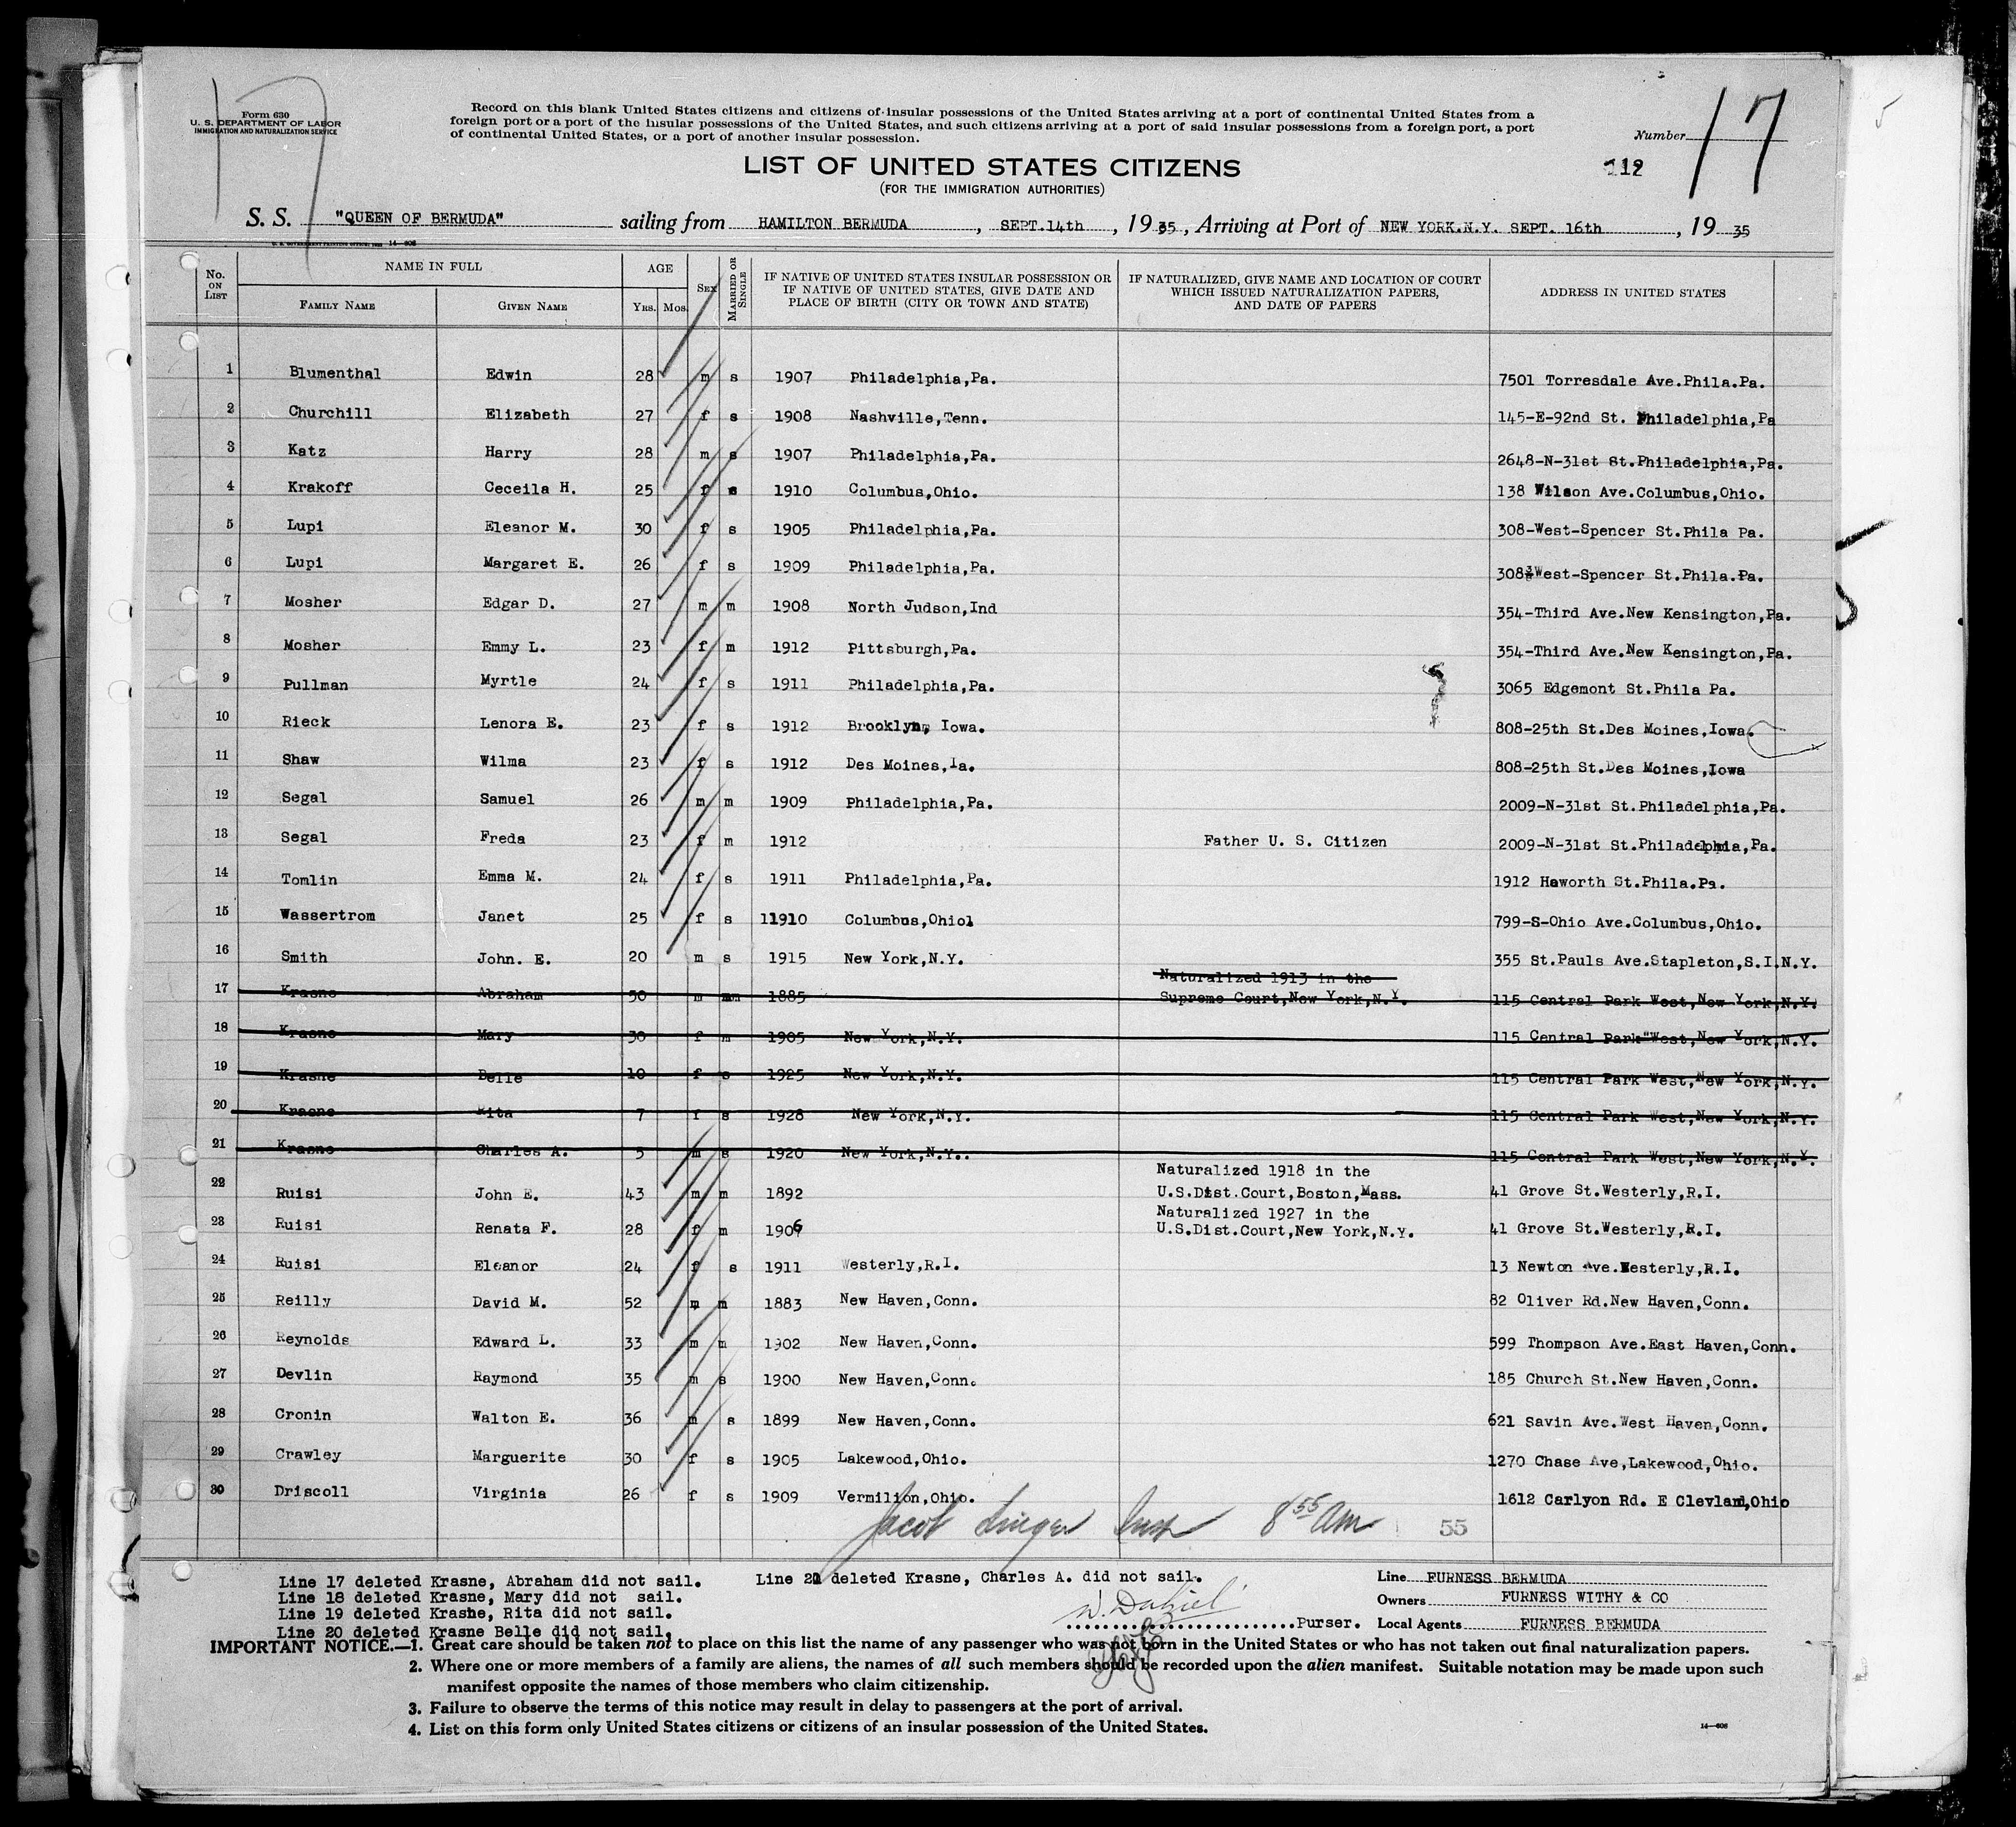 17
Form 630
U. S. DEPARTMENT OF LABOR
IMMIGRATION AND NATURALIZATION SERVICE
Record on this blank United States citizens and citizens of insular possessions of the United States arriving at a port of continental United States from a
foreign port or a port of the insular possessions of the United States, and such citizens arriving at a port of said insular possessions from a foreign port, a port
of continental United States, or a port of another insular possession.
Number 17
LIST OF UNITED STATES CITIZENS
112
(FOR THE IMMIGRATION AUTHORITIES)
S. S. "QUEEN OF BERMUDA" sailing from HAMILTON BERMUDA, SEPT.14th, 1935, Arriving at Port of NEW YORK.N.Y. SEPT. 16th, 19 35
No. ON LIST NAME IN FULL FAMILY NAME GIVEN NAME AGE YRS. MOS. SEX MARRIED OR SINGLE IF NATIVE OF UNITED STATES INSULAR POSSESSION OR IF NATIVE OF UNITED STATES, GIVE DATE AND PLACE OF BIRTH (CITY OR TOWN AND STATE) IF NATURALIZED, GIVE NAME AND LOCATION OF COURT WHICH ISSUED NATURALIZATION PAPERS, AND DATE OF PAPERS ADDRESS IN UNITED STATES
1 Blumenthal Edwin 28 m s 1907 Philadelphia,Pa. 7501 Torresdale Ave.Phila.Pa.
2 Churchill Elizabeth 27 f s 1908 Nashville,Tenn. 145-E-92nd St. Philadelphia,Pa
3 Katz Harry 28 m s 1907 Philadelphia,Pa. 2648-N-31st St.Philadelphia,Pa.
4 Krakoff Ceceila H. 25 f s 1910 Columbus,Ohio. 138 Wilson Ave.Columbus,Ohio.
5 Lupi Eleanor M. 30 f s 1905 Philadelphia,Pa. 308-West-Spencer St.Phila Pa.
6 Lupi Margaret E. 26 f s 1909 Philadelphia,Pa. 308-West-Spencer St.Phila.Pa.
7 Mosher Edgar D. 27 m m 1908 North Judson,Ind 354-Third Ave.New Kensington,Pa.
8 Mosher Emmy L. 23 f m 1912 Pittsburgh,Pa. 354-Third Ave.New Kensington,Pa.
9 Pullman Myrtle 24 f s 1911 Philadelphia,Pa. 3065 Edgemont St.Phila Pa.
10 Rieck Lenora E. 23 f s 1912 Brooklyn, Iowa. 808-25th St.Des Moines,Iowa.
11 Shaw Wilma 23 f s 1912 Des Moines,Ia. 808-25th St.Des Moines,Iowa
12 Segal Samuel 26 m m 1909 Philadelphia,Pa. 2009-N-31st St.Philadelphia,Pa.
13 Segal Freda 23 f m 1912 Father U. S. Citizen 2009-N-31st St.Philadelphia,Pa.
14 Tomlin Emma M. 24 f s 1911 Philadelphia,Pa. 1912 Haworth St.Phila.Pa.
15 Wassertrom Janet 25 f s 11910 Columbus,Ohiol 799-S-Ohio Ave.Columbus,Ohio.
16 Smith John. E. 20 m s 1915 New York,N.Y. 355 St.Pauls Ave.Stapleton,S.I.N.Y.
Naturalized 1913 in the
17 Krasne Abraham 50 m mm 1885 Supreme Court,New York,N.Y. 115 Central Park West,New York,N.Y.
18 Krasne Mary 30 f m 1905 New York,N.Y. 115 Central Park"West,New York,N.Y.
19 Krasne Belle 10 f s 1925 New York,N.Y. 115 Central Park West,New York,N.Y.
20 Krasne Rita 7 f s 1928 New York,N.Y. 115 Central Park West,New York,N.Y.
21 Krasne Charles A. 5 m s 1920 New York,N.Y.. 115 Central Park West,New York,N.Y.
Naturalized 1918 in the
22 Ruisi John E. 43 m m 1892 U.S.Dist.Court,Boston,Mass. 41 Grove St.Westerly,R.I.
Naturalized 1927 in the
23 Ruisi Renata F. 28 f m 1906 U.S.Dist.Court,New York,N.Y. 41 Grove St.Westerly,R.I.
24 Ruisi Eleanor 24 f s 1911 Westerly,R.I. 13 Newton Ave.Westerly,R.I.
25 Reilly David M. 52 m m 1883 New Haven,Conn. 82 Oliver Rd.New Haven,Conn.
26 Reynolds Edward L. 33 m m 1902 New Haven,Conn. 599 Thompson Ave.East Haven,Conn.
27 Devlin Raymond 35 m s 1900 New Haven,Conn. 185 Church St.New Haven,Conn.
28 Cronin Walton E. 36 m s 1899 New Haven,Conn. 621 Savin Ave.West Haven,Conn.
29 Crawley Marguerite 30 f s 1905 Lakewood,Ohio. 1270 Chase Ave,Lakewood,Ohio.
30 Driscoll Virginia 26 f s 1909 Vermilion,Ohio. 1612 Carlyon Rd. E Clevland,Ohio
Jacob Singer Insp 8 55 Am 55
Line 17 deleted Krasne, Abraham did not sail. Line 21 deleted Krasne, Charles A. did not sail.
Line 18 deleted Krasne, Mary did not sail.
Line 19 deleted Krasne, Rita did not sail.
Line 20 deleted Krasne Belle did not sail.
Purser.
Line FURNESS BERMUDA
Owners FURNESS WITHY & CO
Local Agents FURNESS BERMUDA
IMPORTANT NOTICE.—1. Great care should be taken not to place on this list the name of any passenger who was not born in the United States or who has not taken out final naturalization papers.
2. Where one or more members of a family are aliens, the names of all such members should be recorded upon the alien manifest. Suitable notation may be made upon such
manifest opposite the names of those members who claim citizenship.
3. Failure to observe the terms of this notice may result in delay to passengers at the port of arrival.
4. List on this form only United States citizens or citizens of an insular possession of the United States.
14—608